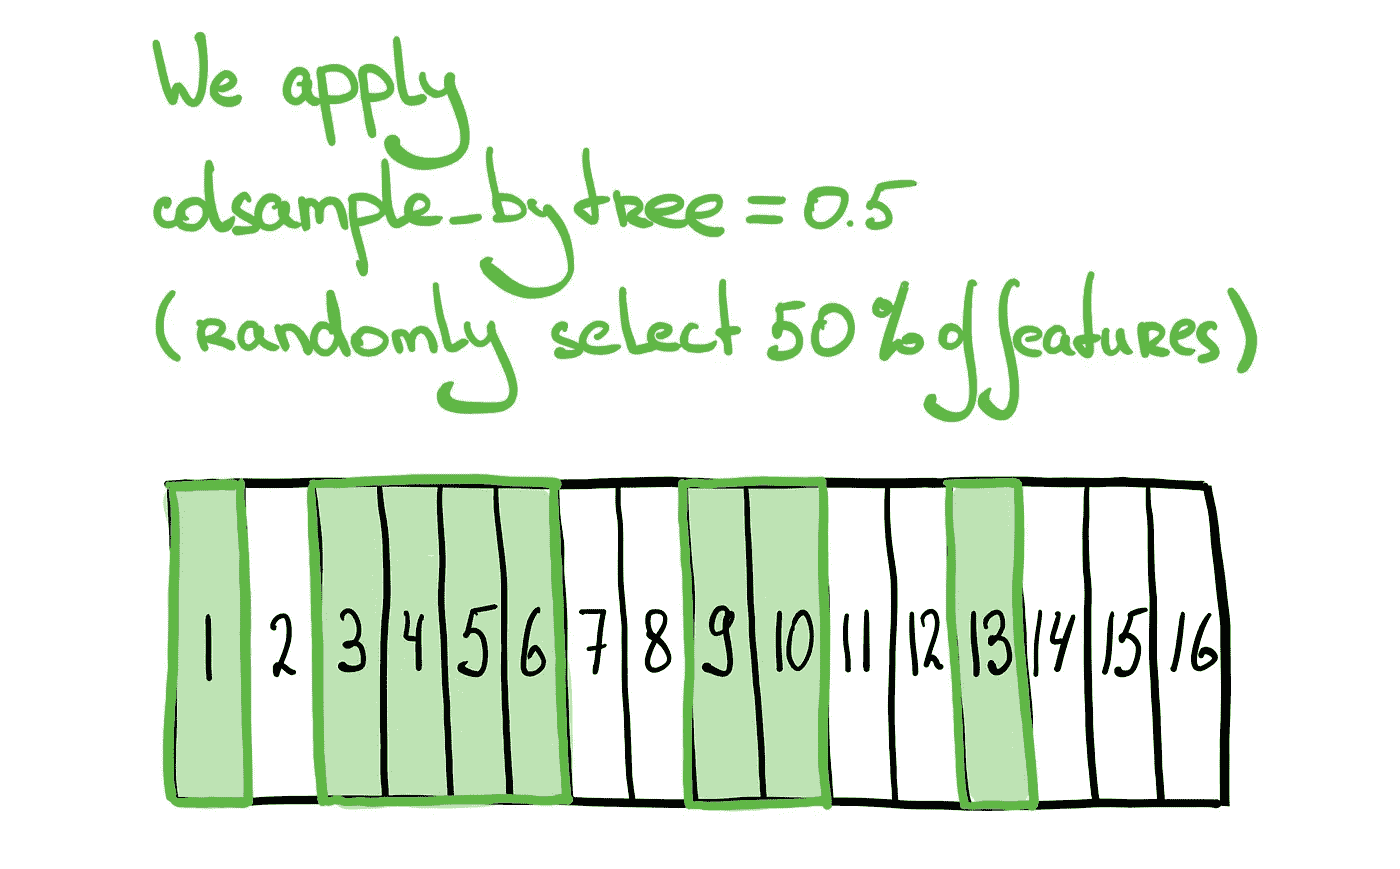 We apply
colsample_bytree = 0.5
(randomly select 50% of features)
1 2 3 4 5 6 7 8 9 10 11 12 13 14 15 16